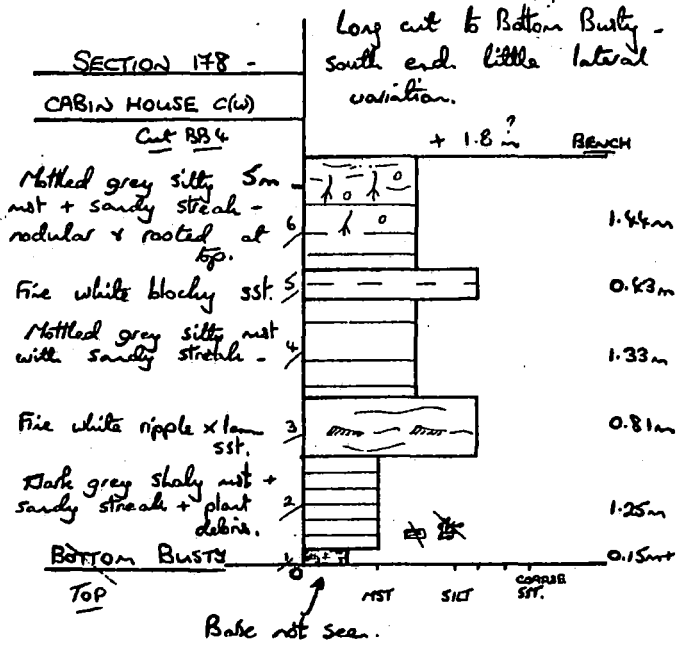 Long cut to Bottom Busty -
south end. little lateral
variation.
SECTION 178 -
CABIN HOUSE C(W)
Cut BB4
+ 1.8 m ?
BENCH
Mottled grey silty 5m
mst + sandy streak -
nodular & rooted at
top.
6
1.44m
Fine white blocky sst.
5
0.43m
Mottled grey silty mst
with sandy streak -
4
1.33m
Fine white ripple x lam
sst.
3
0.81m
Dark grey shaly mst +
sandy streak + plant
debris.
2
1.25m
BOTTOM BUSTY
1
0.15m+
0
TOP
MST
SILT
COARSE
SST.
Base not seen.